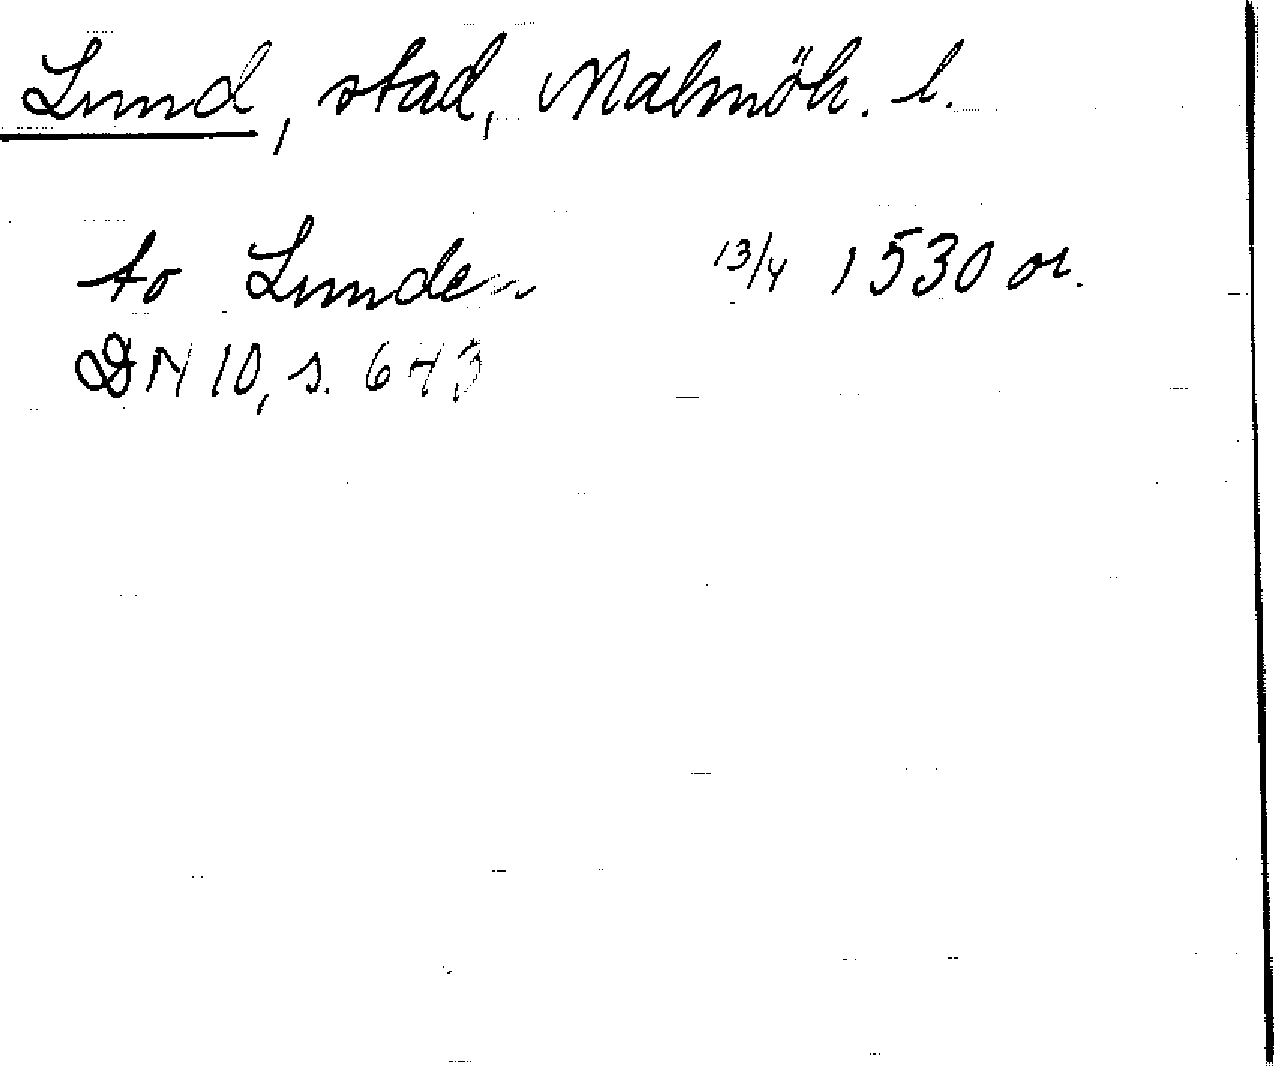 Lund, stad, Malmöh. l.
to Lunden 13/4 1530 or.
DN 10, s. 643